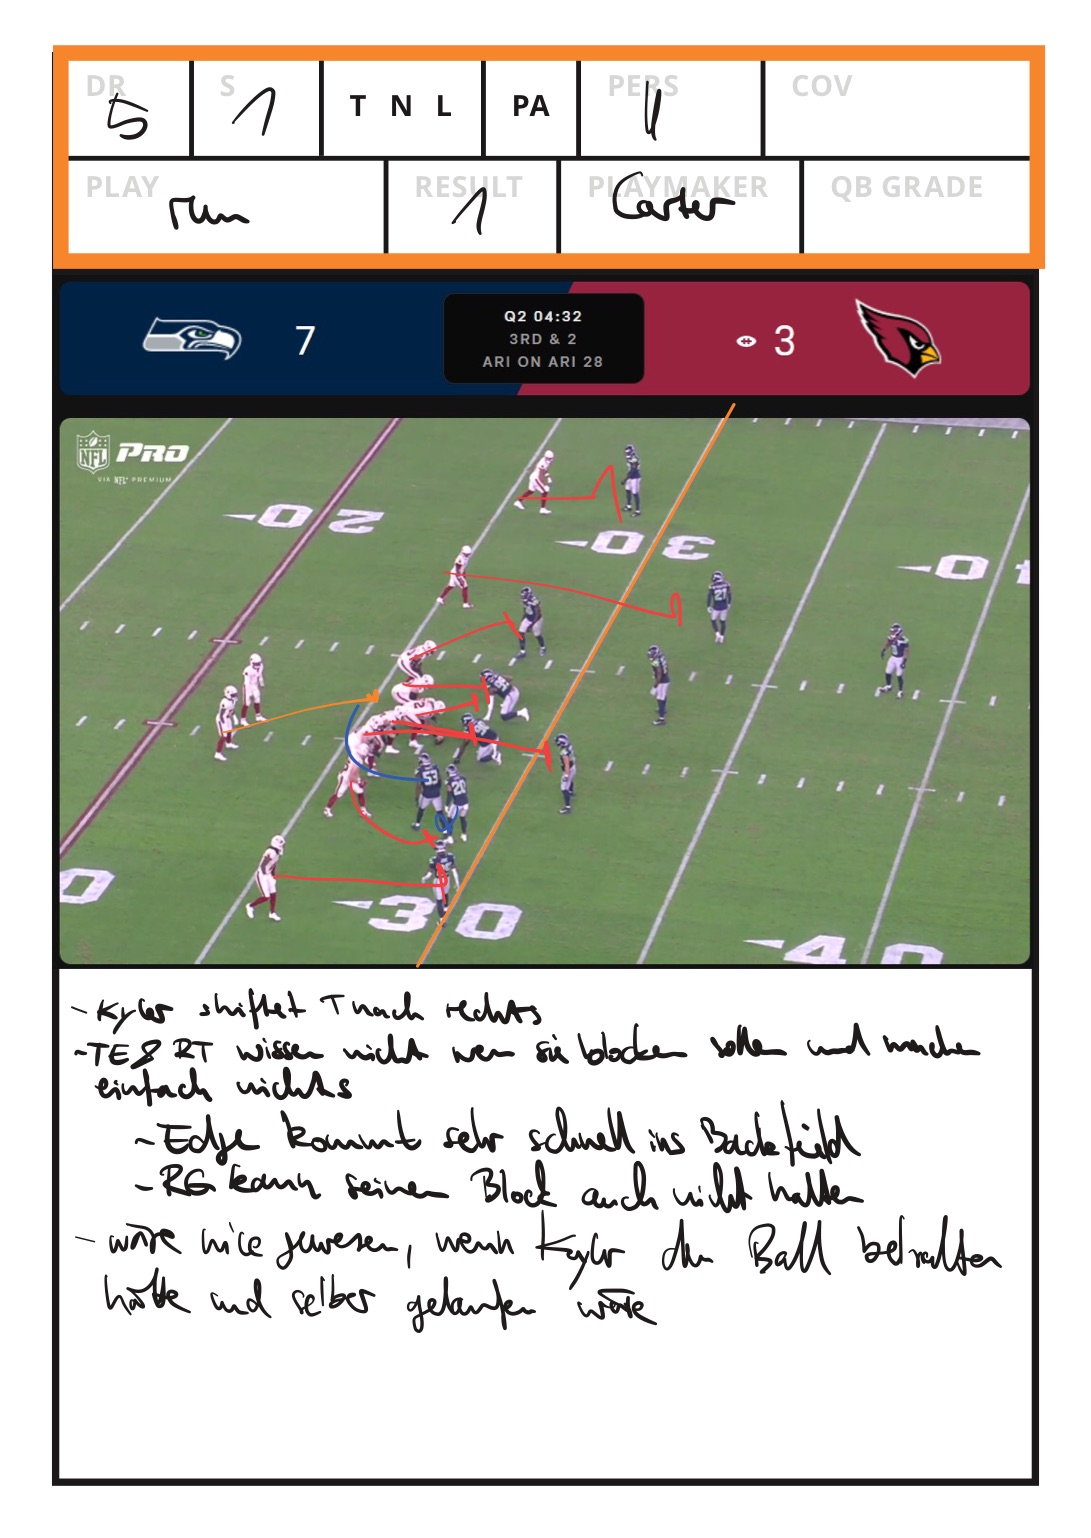 DR S T N L PA PERS COV
5 1 11
PLAY RESULT PLAYMAKER QB GRADE
run 1 Carter
7 Q2 04:32 3
3RD & 2
ARI ON ARI 28
NFL PRO
VIA NFL+ PREMIUM
2 0
3 0
0
21
53
20
0
3 0
4 0
- Kyler shiftet T nach rechts
- TE & RT wissen nicht wen sie blocken sollen und machen
einfach nichts
- Edge kommt sehr schnell ins Backfield
- RG kann seinen Block auch nicht halten
- wäre nice gewesen, wenn Kyler den Ball behalten
hätte und selber gelaufen wäre